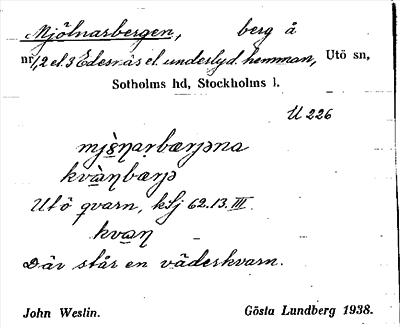 Mjölnarbergen, berg å
nr 1,2 el. 3 Edesnäs el. underlyd. hemman, Utö sn,
Sotholms hd, Stockholms l.
U 226
mjö̀ṇaṛbærjəna
kvàṇbærjə
Utö qvarn, kSj 62.13.III.
kvaṇ
Där står en väderkvarn.
John Westin. Gösta Lundberg 1938.